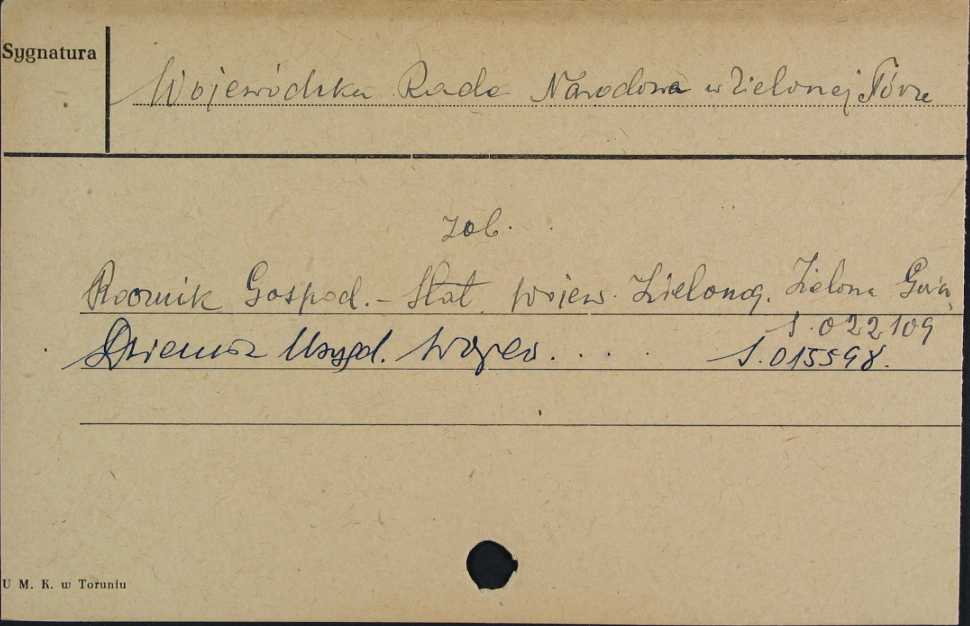 Sygnatura
Wojewódzka Rada Narodowa w Zielonej Górze
zob.
Rocznik Gospod. - Stat. wojew. Zielonog. Zielona Góra,
S. 022109
Dziennik Urzęd. Wojew. . . . S. 015598.
U M. K. w Toruniu